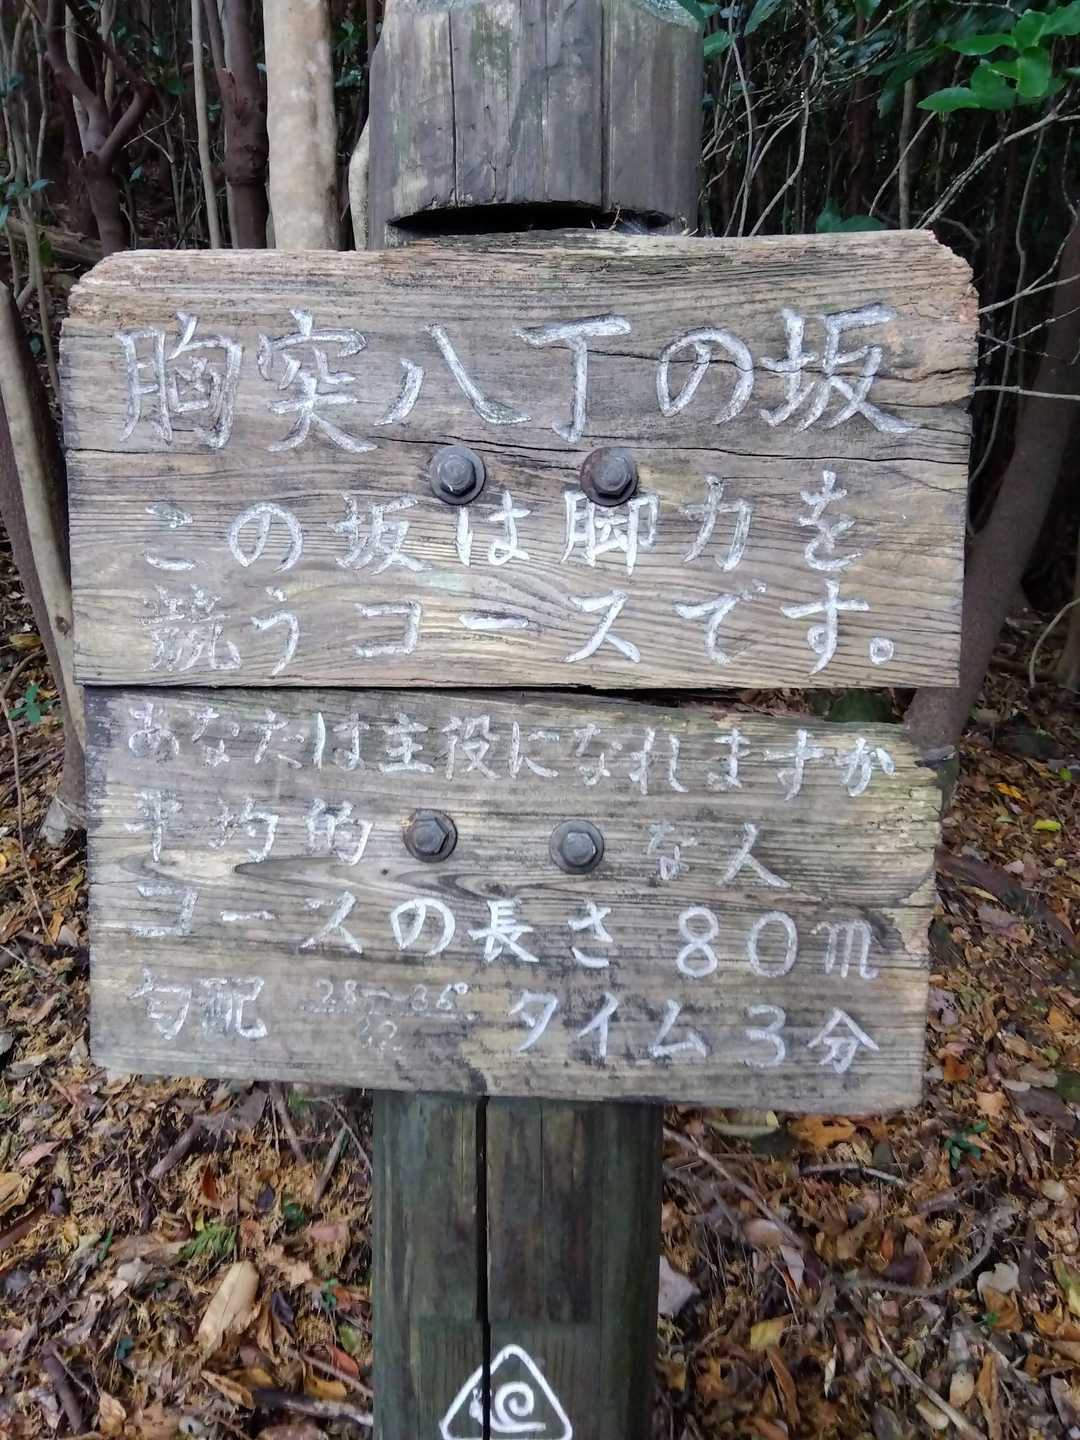 胸突八丁の坂
この坂は脚力を
競うコースです。
あなたは主役になれますか
平均的な人
コースの長さ 80m
勾配 タイム 3分